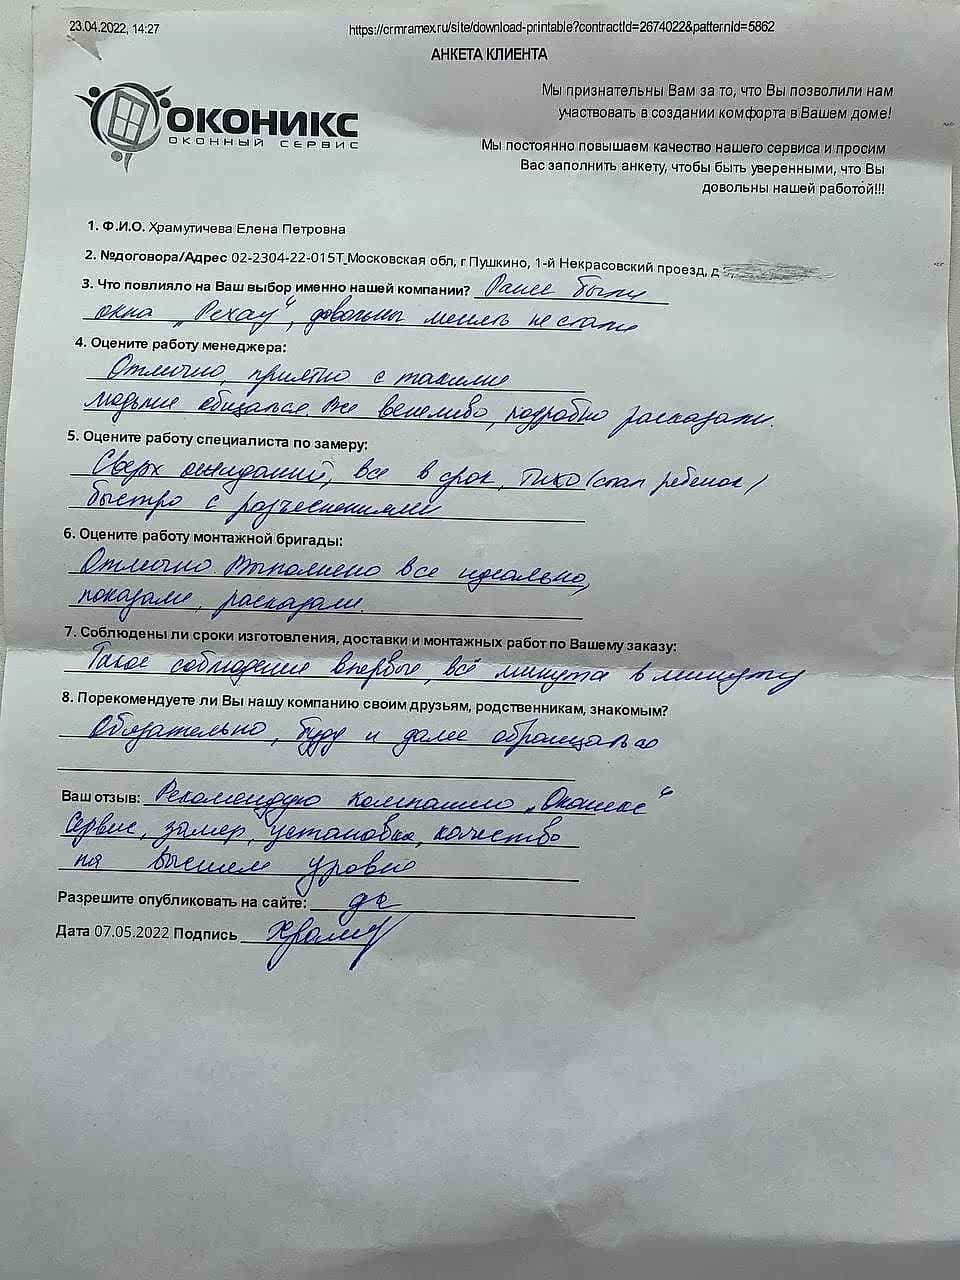 23.04.2022, 14:27 https://crmramex.ru/site/download-printable?contractId=2674022&patternId=5862
АНКЕТА КЛИЕНТА
ОКОНИКС
ОКОННЫЙ СЕРВИС
Мы признательны Вам за то, что Вы позволили нам
участвовать в создании комфорта в Вашем доме!
Мы постоянно повышаем качество нашего сервиса и просим
Вас заполнить анкету, чтобы быть уверенными, что Вы
довольны нашей работой!!!
1. Ф.И.О. Храмутичева Елена Петровна
2. №договора/Адрес 02-2304-22-015Т_Московская обл, г Пушкино, 1-й Некрасовский проезд, д
3. Что повлияло на Ваш выбор именно нашей компании? Ранее были
окна „Рехау", довольны менять не стали
4. Оцените работу менеджера:
Отлично, приятно с такими
людьми общаться. Все вежливо, подробно расказали.
5. Оцените работу специалиста по замеру:
Сверх ожиданий, все в срок, тихо (спал ребенок)
быстро с разъеснениями
6. Оцените работу монтажной бригады:
Отлично. Выполнено все идеально,
показали, расказали.
7. Соблюдены ли сроки изготовления, доставки и монтажных работ по Вашему заказу:
Такое соблюдение впервые, всё минута в минуту
8. Порекомендуете ли Вы нашу компанию своим друзьям, родственникам, знакомым?
Обязательно, буду и далее обращаться
Ваш отзыв: Рекомендую компанию „Оконикс"
Сервис, замер, установка, качество
на высшем уровне
Разрешите опубликовать на сайте: да
Дата 07.05.2022 Подпись Храму